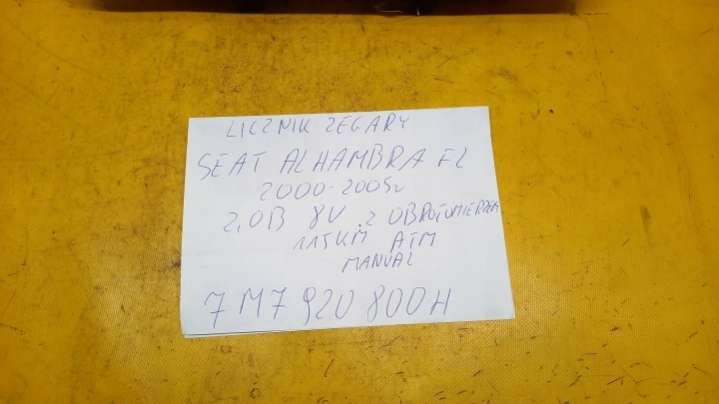 LICZNIK ZEGARY
SEAT ALHAMBRA FL
2000-2005r
2,0B 8V Z OBROTOMIERZEM
115KM ATM
MANUAL
7M7 920 800H